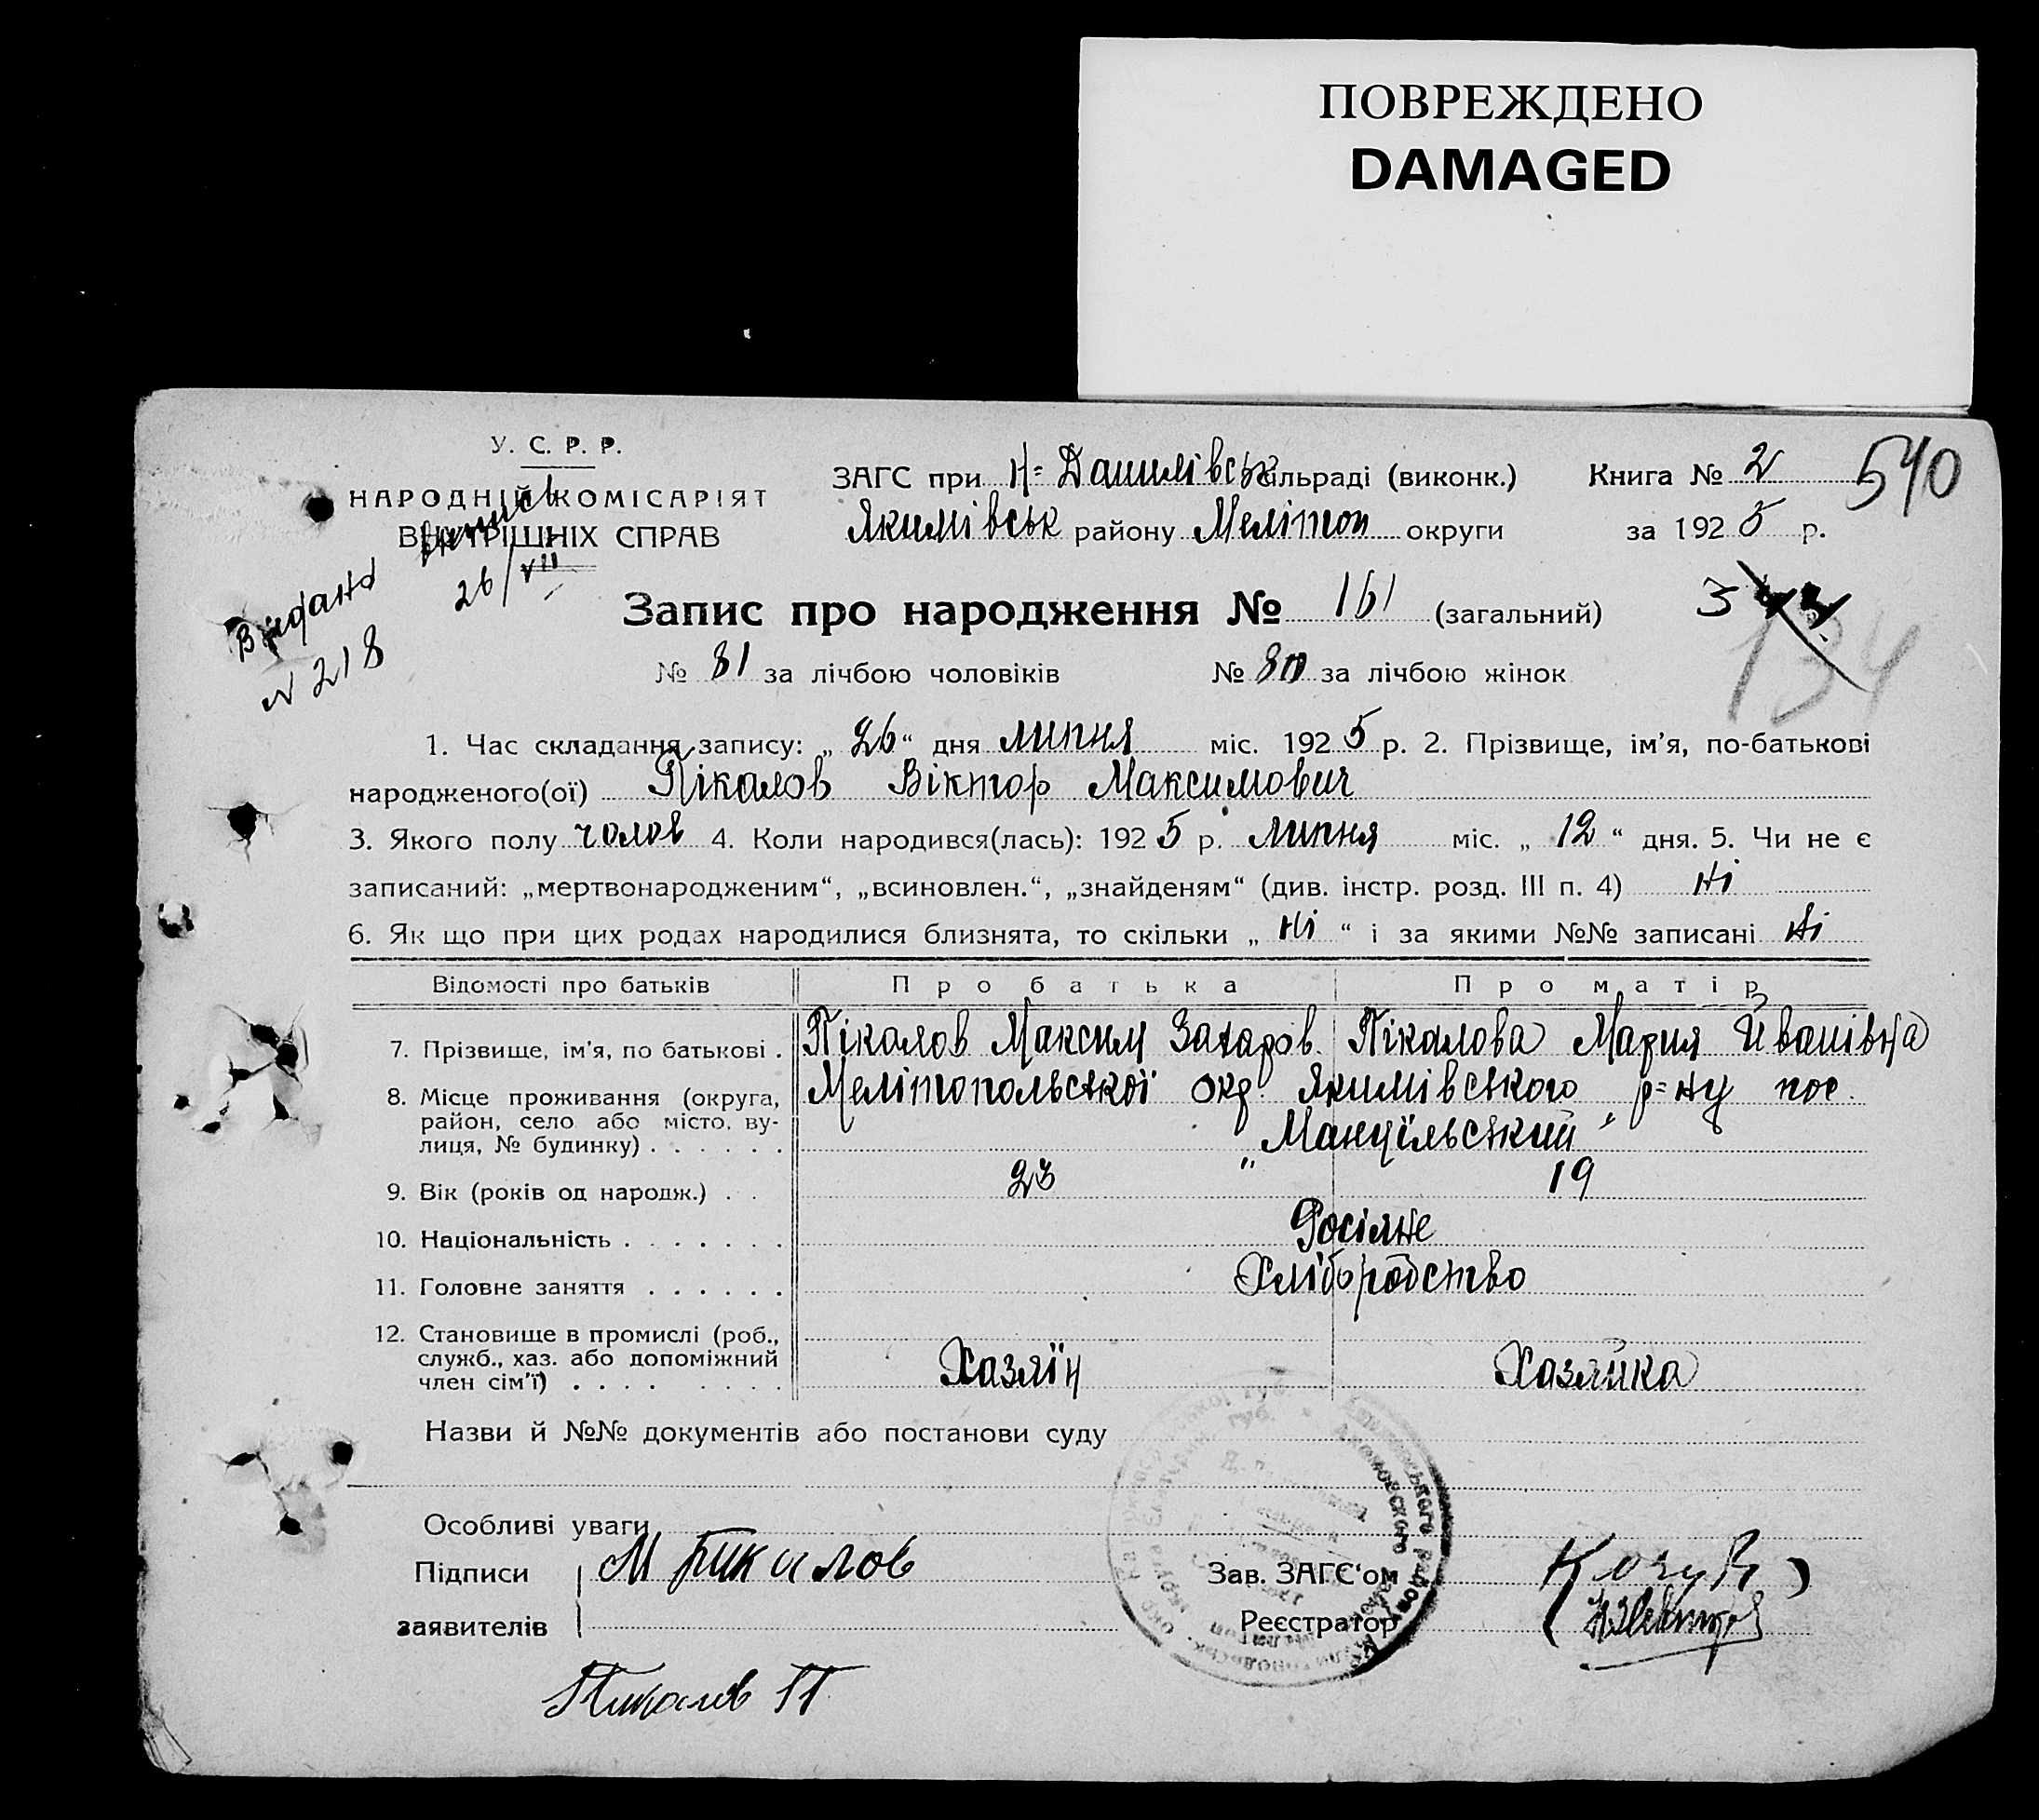 ПОВРЕЖДЕНО
DAMAGED
У. С. Р. Р.
НАРОДНІЙ КОМІСАРІЯТ
ВНУТРІШНІХ СПРАВ
Видано виписъ
26/VII
№ 218
ЗАГС при Н=Данилівськ сільраді (виконк.) Книга № 2 540
Якимівськ району Мелітоп округи за 1925 р.
Запис про народження № 161 (загальний)
134
№ 81 за лічбою чоловіків № 80 за лічбою жінок
1. Час складання запису: „26“ дня липня міс. 1925 р. 2. Прізвище, ім’я, по-батькові
народженого(ої) Пікалов Віктор Максимович
3. Якого полу чолов 4. Коли народився(лась): 1925 р. липня міс. „12“ дня. 5. Чи не є
записаний: „мертвонародженим“, „всиновлен.“, „знайденям“ (див. інстр. розд. III п. 4) Ні
6. Як що при цих родах народилися близнята, то скільки „Ні“ і за якими №№ записані Ні
Відомості про батьків Про батька Про матір
7. Прізвище, ім’я, по батькові . Пікалов Максим Захаров. Пікалова Мария Иванівна
8. Місце проживання (округа, Мелітопольської окр. Якимівського р=ну пос.
район, село або місто, ву-
лиця, № будинку) . . . . . . „Мануїльський“
9. Вік (років од народж.) . . 23 19
10. Національність . . . . . . . Росіяне
11. Головне заняття . . . . . . Хліборобство
12. Становище в промислі (роб.,
служб., хаз. або допоміжний
член сім’ї) . . . . . . . . Хазяїн Хазяйка
Назви й №№ документів або постанови суду
Особливі уваги
Підписи М Пикалов Зав. ЗАГС‘ом
заявителів Реєстратор
Пикалов П